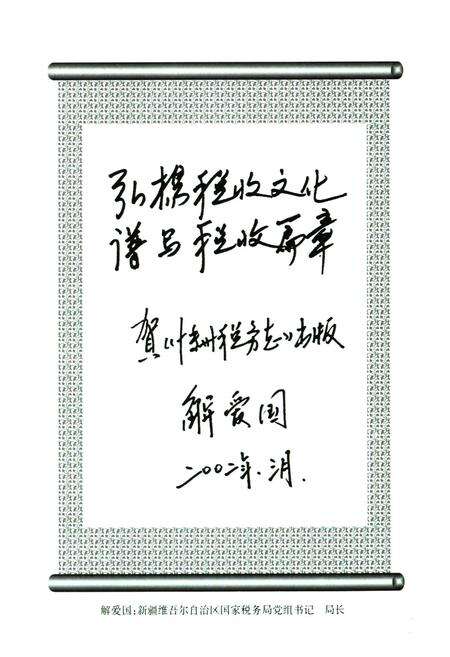 弘揚税收文化
谱写税收篇章
賀《税务志》出版
解爱国
二00二年.三月.
解爱国:新疆维吾尔自治区国家税务局党组书记 局长